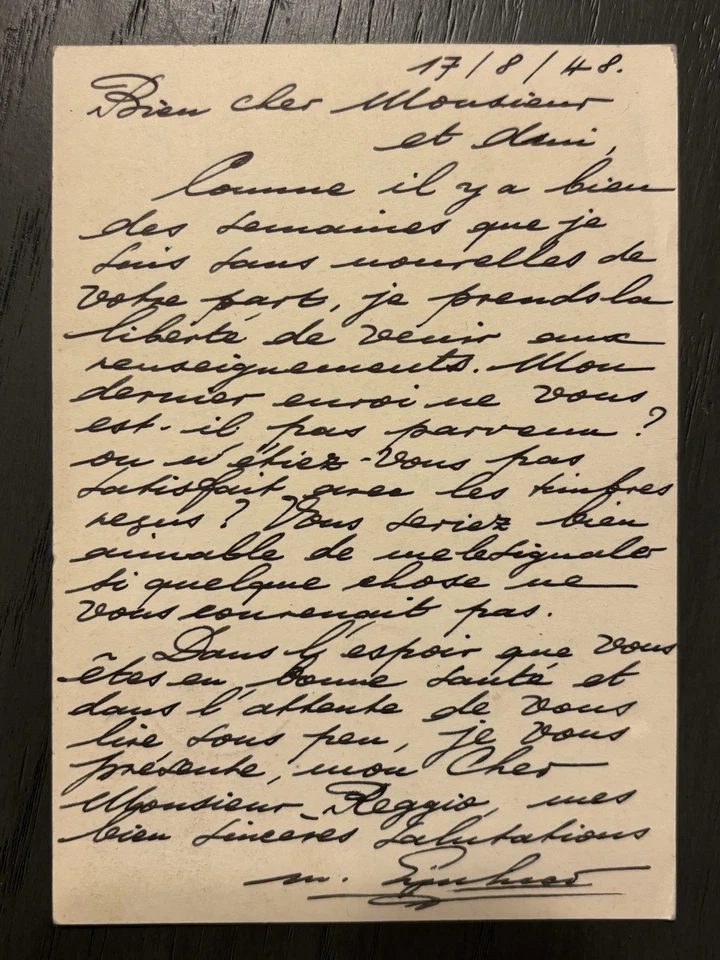 17/8/48.
Bien cher Monsieur
et Ami,
Comme il y a bien
des semaines que je
suis sans nouvelles de
votre part, je prends la
liberté de venir aux
renseignements. Mon
dernier envoi ne vous
est-il pas parvenu ?
ou n'étiez-vous pas
satisfait avec les timbres
reçus ? Vous seriez bien
aimable de me le signaler
si quelque chose ne
vous convenait pas.
Dans l'espoir que vous
êtes en bonne santé et
dans l'attente de vous
lire sous peu, je vous
présente, mon Cher
Monsieur Reggio, mes
bien sincères salutations
m.